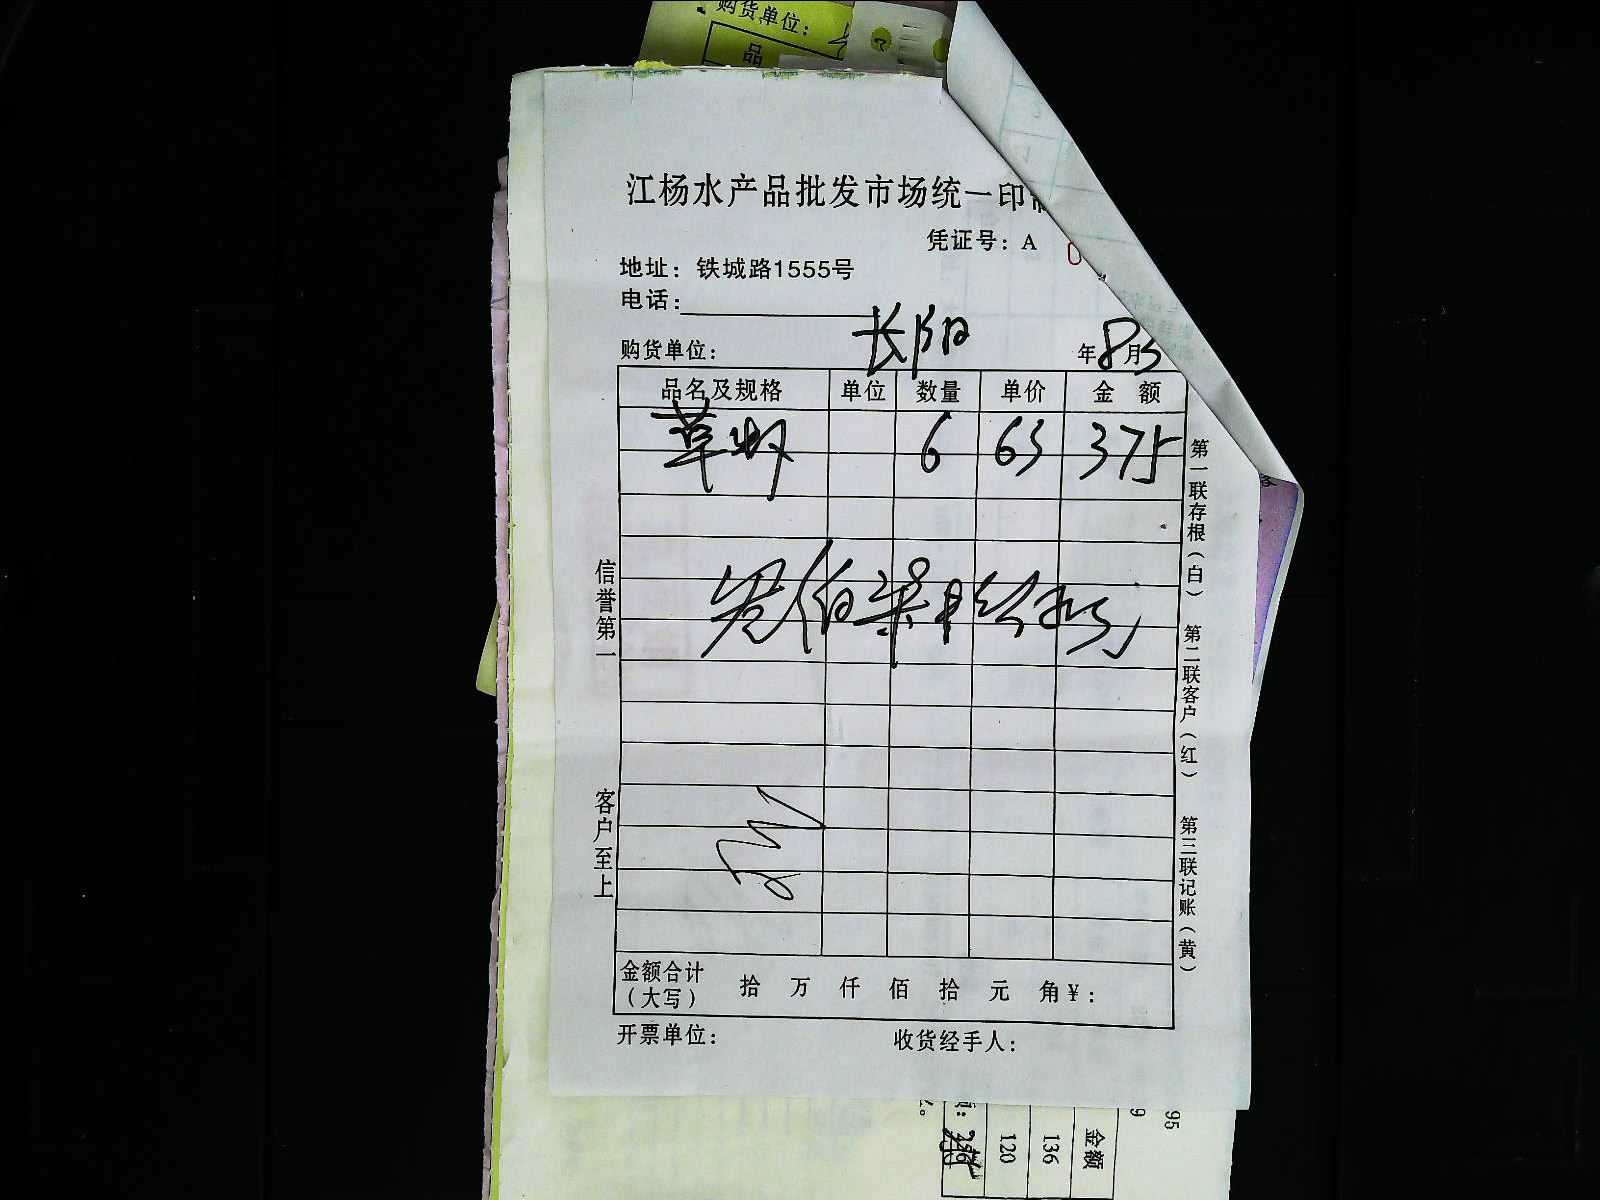 购货单位：
品
江杨水产品批发市场统一印
凭证号：A 0
地址：铁城路1555号
电话：
购货单位： 长阳 年8月3
品名及规格 单位 数量 单价 金额
草虾 6 63 375
信誉第一
客户至上
第一联存根（白） 第二联客户（红） 第三联记账（黄）
金额合计（大写） 拾 万 仟 佰 拾 元 角 ¥：
开票单位： 收货经手人：
金额
136
120
95
9